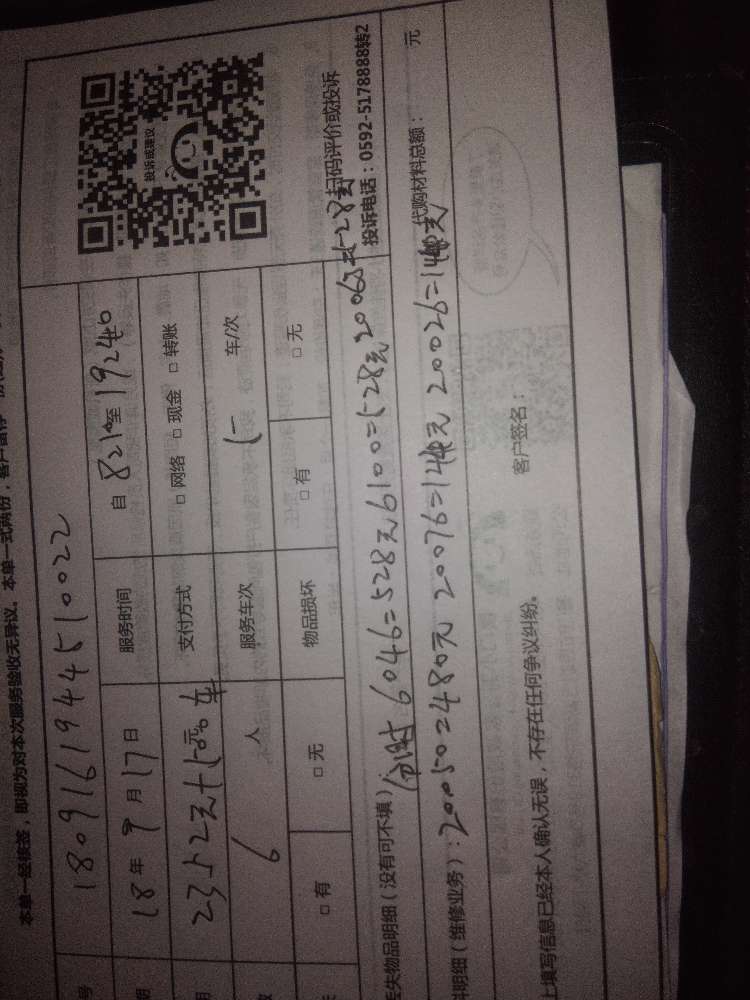 本单一经核签，即视为对本次服务验收无异议。本单一式两份，客户留存
号 180916194451002​2
18 年 9 月 17 日 服务时间 自 8210 至 19240
2352元+150元 车 支付方式 □ 网络 □ 现金 □ 转账
6 人 服务车次 1 车/次
□ 有 □ 无 物品损坏 □ 有 □ 无
投诉或建议
扫码评价或投诉
投诉电话：0592-5178888转2
丢失物品明细（没有可不填） 6046=528元 6100=528元 20063=528元
料明细（维修业务）：20050=480元 20076=144元 20026=144元 代购材料总额： 元
客户签名：
上填写信息已经本人确认无误，不存在任何争议纠纷。